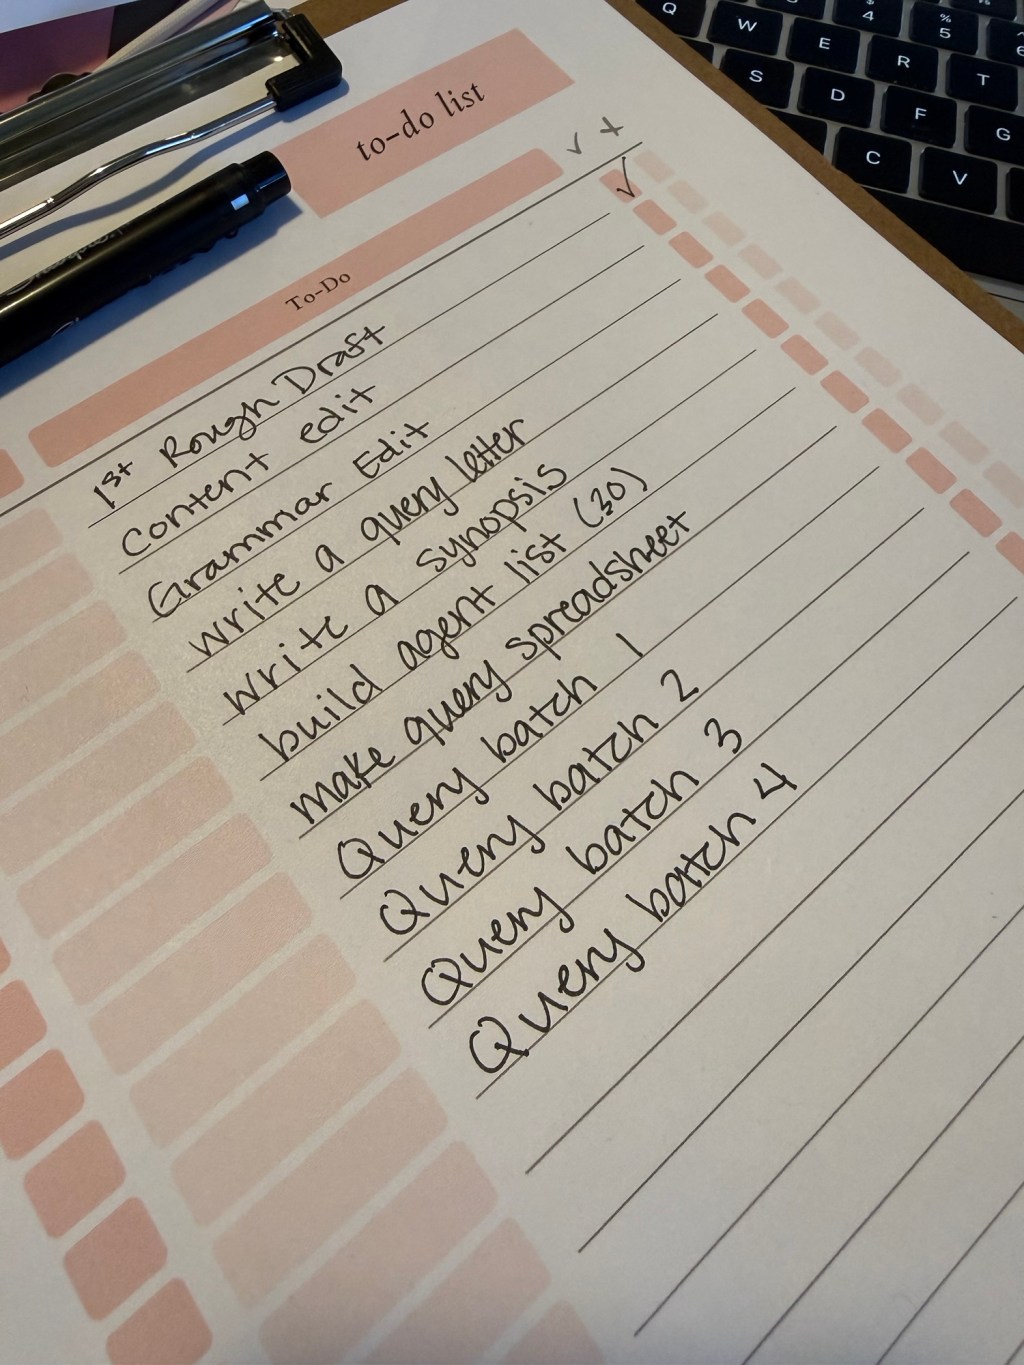 to-do list
To-Do
✓ x
✓
1st Rough Draft
Content edit
Grammar Edit
write a query letter
write a synopsis
build agent list (30)
make query spreadsheet
Query batch 1
Query batch 2
Query batch 3
Query batch 4
Sharpie
Q W E R T
S D F G
C V
$ 4 % 5